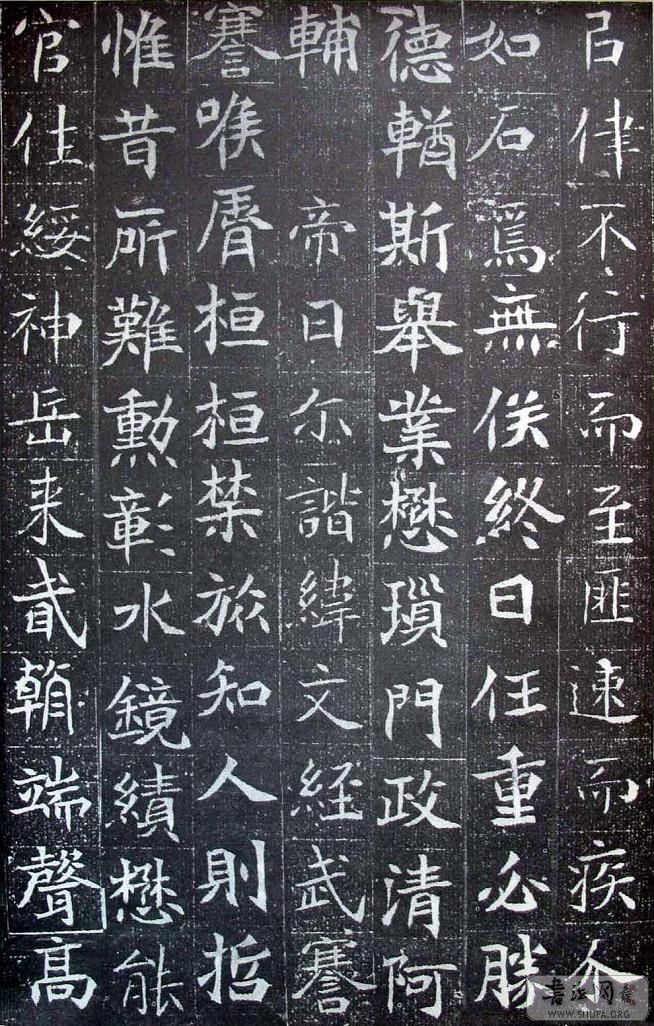 吕律不行而至匪速而疾介
如石焉無俟終日任重必勝
德輶斯舉業懋瑣門政清阿
輔 帝曰尔諧緯文經武謇
謇喉脣桓桓禁旅知人則哲
惟昔所難勳彰水鏡績懋能
官仕綏神岳来貳朝端聲高
书法网
WWW.SHUFA.ORG